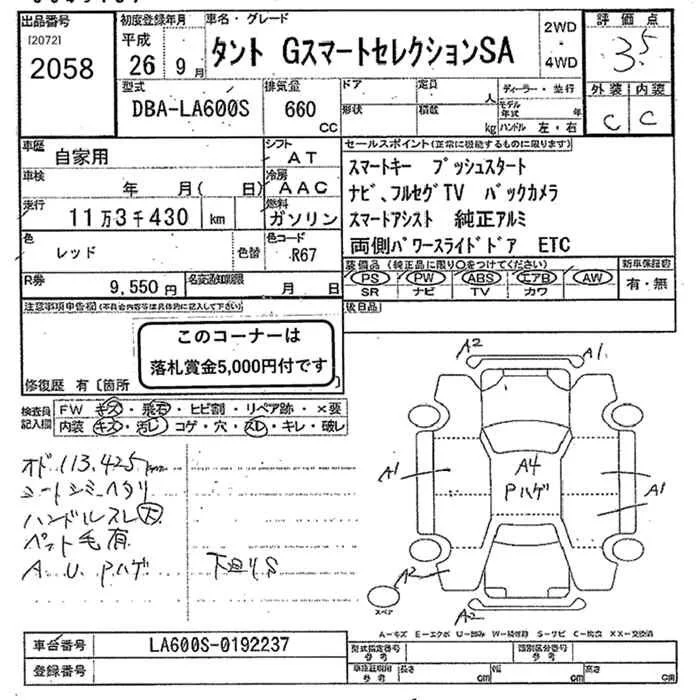 出品番号
[2072]
2058
初度登録年月
平成
26年9月
車名・グレード
タント GスマートセレクションSA
2WD
・
4WD
評価点
3.5
外装 内装
C C
型式
DBA-LA600S
排気量
660
CC
ドア
形状
定員
人
積数
kg
ディーラー・並行
モデル年式 年
ハンドル 左・右
車歴
自家用
シフト
AT
車検
年 月( 日)
冷房
AAC
走行
11万3千430 km
燃料
ガソリン
色
レッド
色替
色コード
R67
R券
9,550円
名変通知期限
月 日
セールスポイント(正常に機能するものに限ります)
スマートキー プッシュスタート
ナビ、フルセグTV バックカメラ
スマートアシスト 純正アルミ
両側パワースライドドア ETC
装備品(純正品に限り○をつけてください)
PS PW ABS エアB AW
SR ナビ TV カワ
新車保証書
有・無
後日品
注意事項申告欄(不具合内容等は具体的に記入して下さい)
このコーナーは
落札賞金5,000円付です
修復歴 有〔箇所
検査員記入欄
FW キズ・飛石・ヒビ割・リペア跡・×要
内装 キズ・汚レ・コゲ・穴・スレ・キレ・破レ
オド113,425km
シートシミヘタリ
ハンドルスレ大
ペット毛有
A.U.Pハゲ
下廻りS
A2
A1
A1
A4
Pハゲ
A1
A2
A2
スペア
A-キズ E-エクボ U-凹み W-補修跡 S-サビ C-腐食 XX-交換済
車台番号
LA600S-0192237
登録番号
型式指定番号
参考
類別区分番号
参考
車検証期間
参考
長さ
cm
幅
cm
高さ
cm